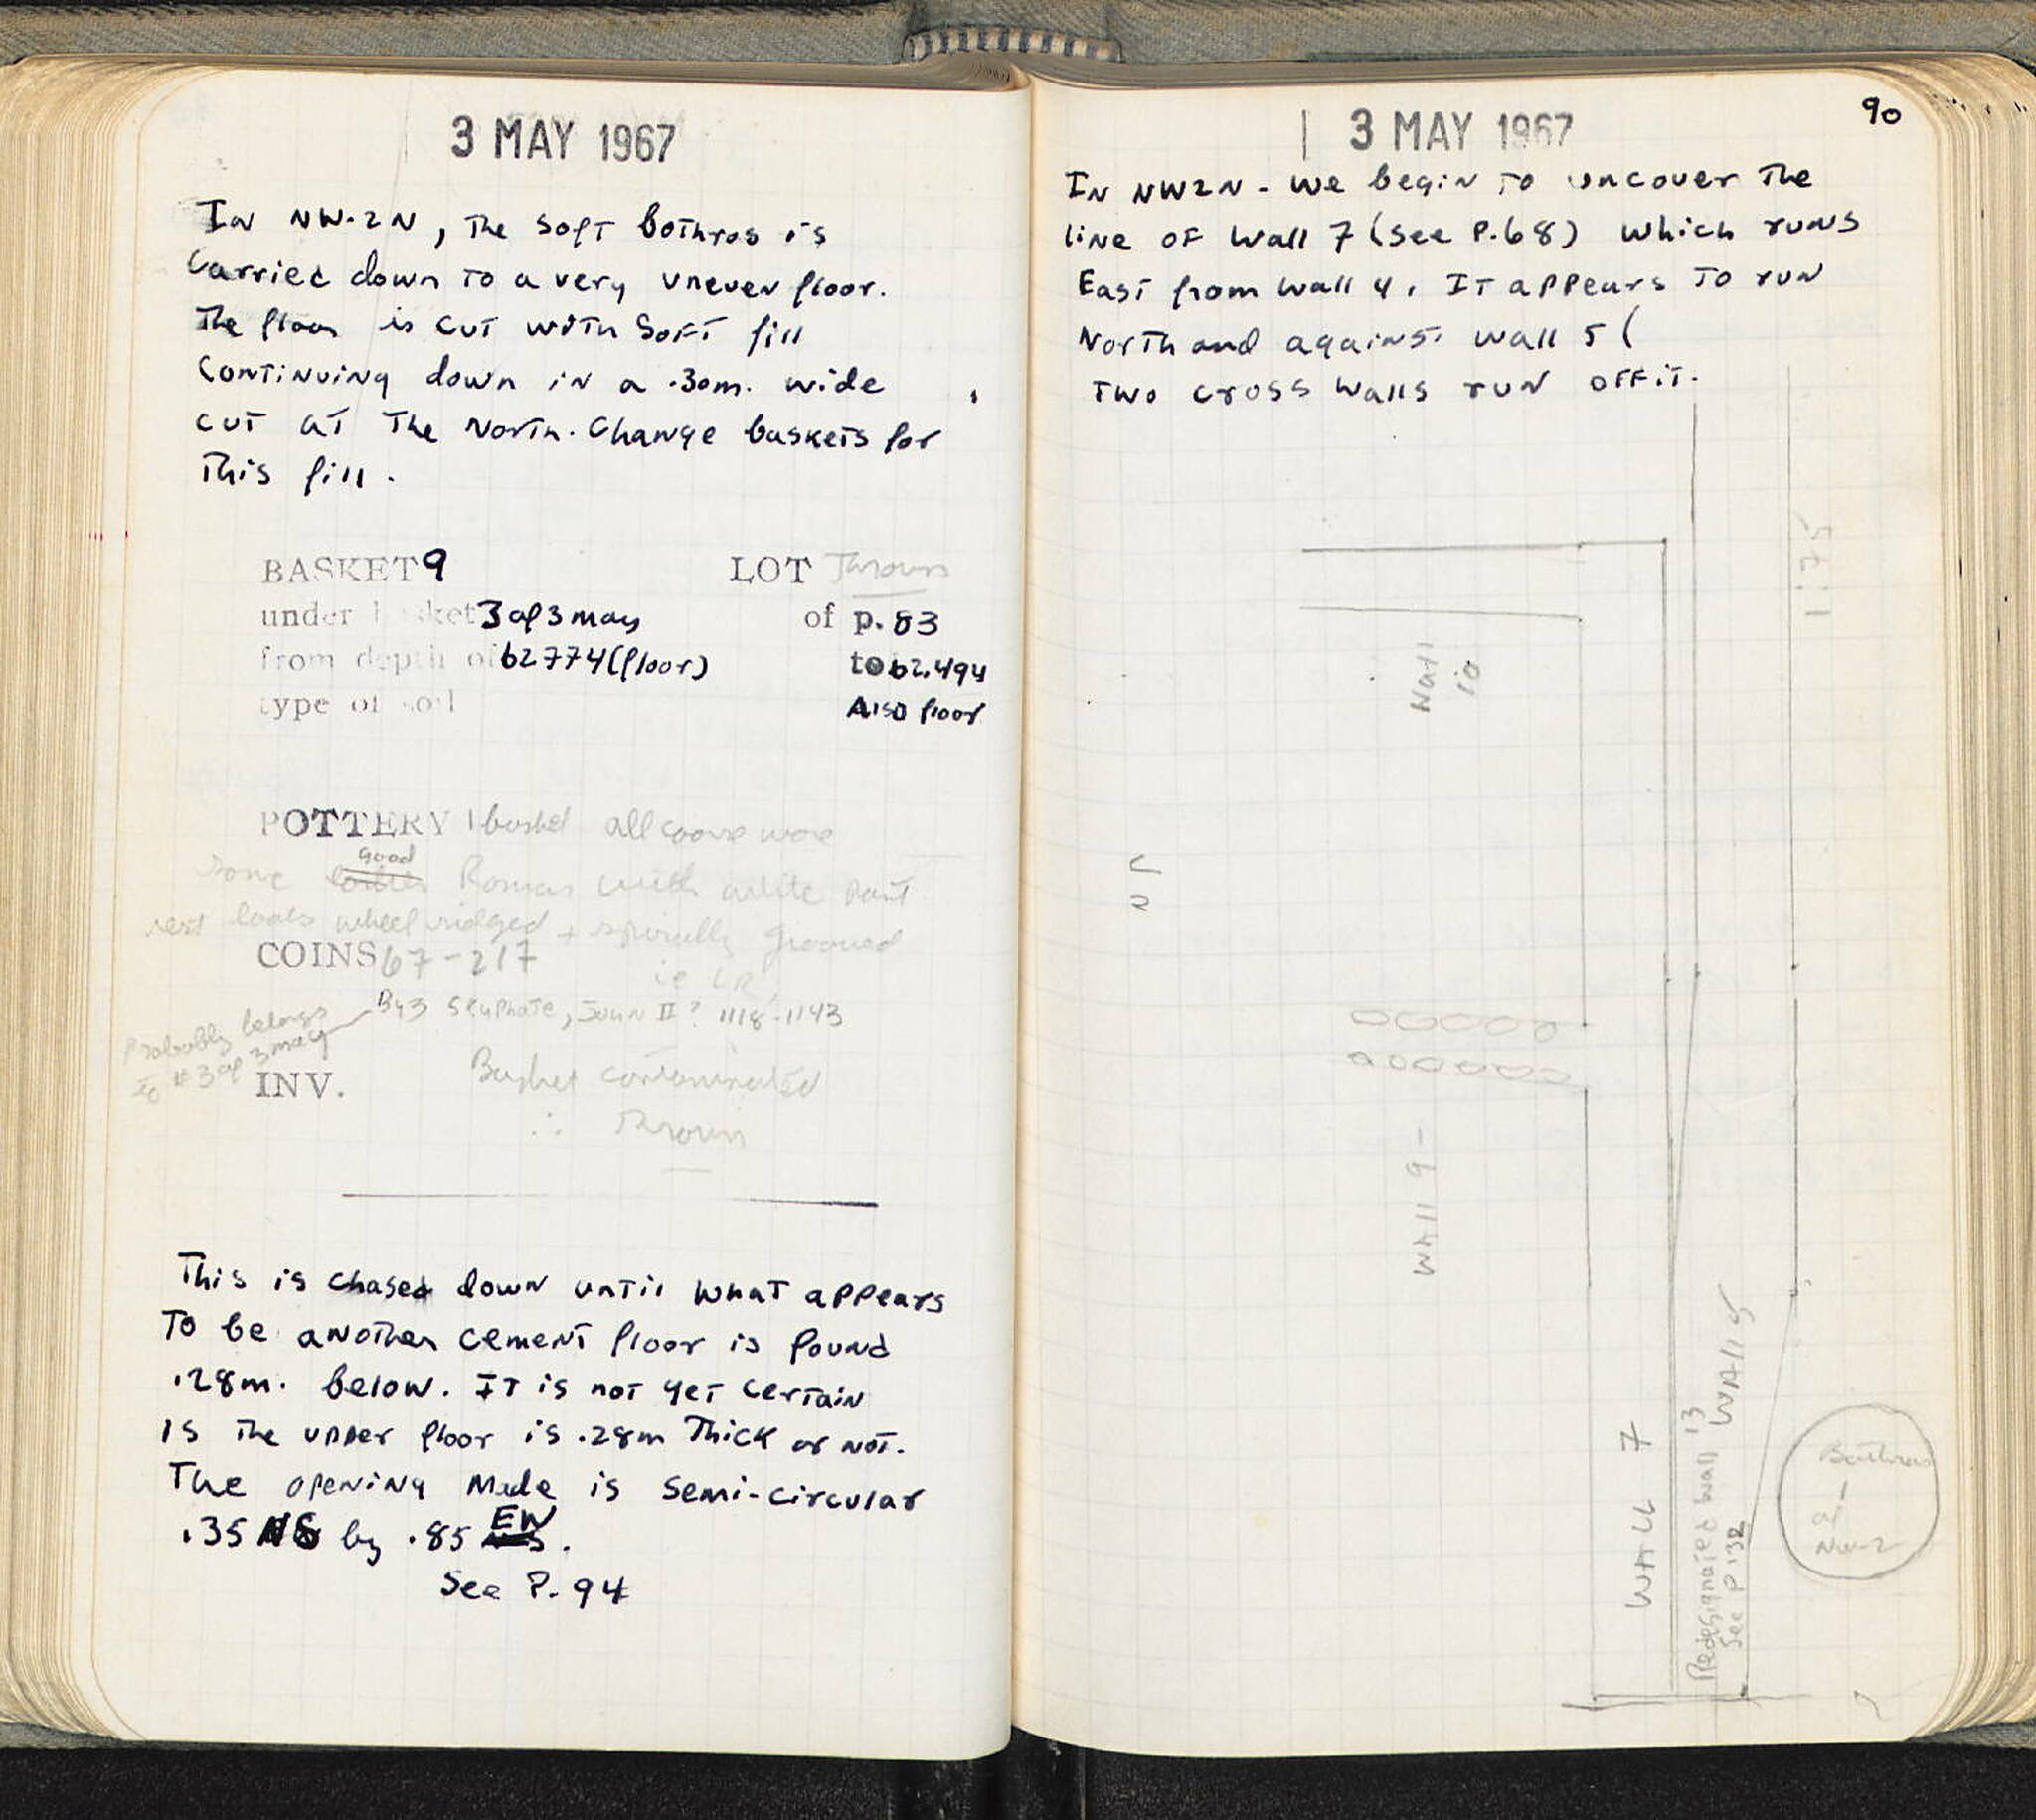 3 MAY 1967
In NW.2N, The soft bothros is
Carried down to a very uneven floor.
The floor is cut with soft fill
Continuing down in a .30m. wide
cut at the North. Change baskets for
This fill.
BASKET 9 LOT Thrown
under basket 3 of 3 may of p. 83
from depth of 62774 (floor) to 62.494
type of soil Also floor
POTTERY 1 basket all coarse ware
good
some Roman with white paint
rest looks wheel ridged + spirally grooved
ie LR
COINS 67-217
Byz Scyphate, John II? 1118-1143
Probably belongs
to #3 of 3 may
INV. Basket contaminated
∴ Thrown
This is chased down until what appears
To be another cement floor is found
.28m. below. It is not yet certain
is the upper floor is .28m Thick or not.
The opening made is semi-circular
.35 NS by .85 EW NS.
See P. 94
3 MAY 1967
90
In NW2N - we begin to uncover The
line of Wall 7 (see P.68) which runs
East from Wall 4. It appears to run
North and against wall 5 (
Two cross walls run off it.
5.71
Wall
10
N
Wall 9
WALL 7
Redesignated Wall 13
See P 132
WALL 5
Bothros
of
NW-2